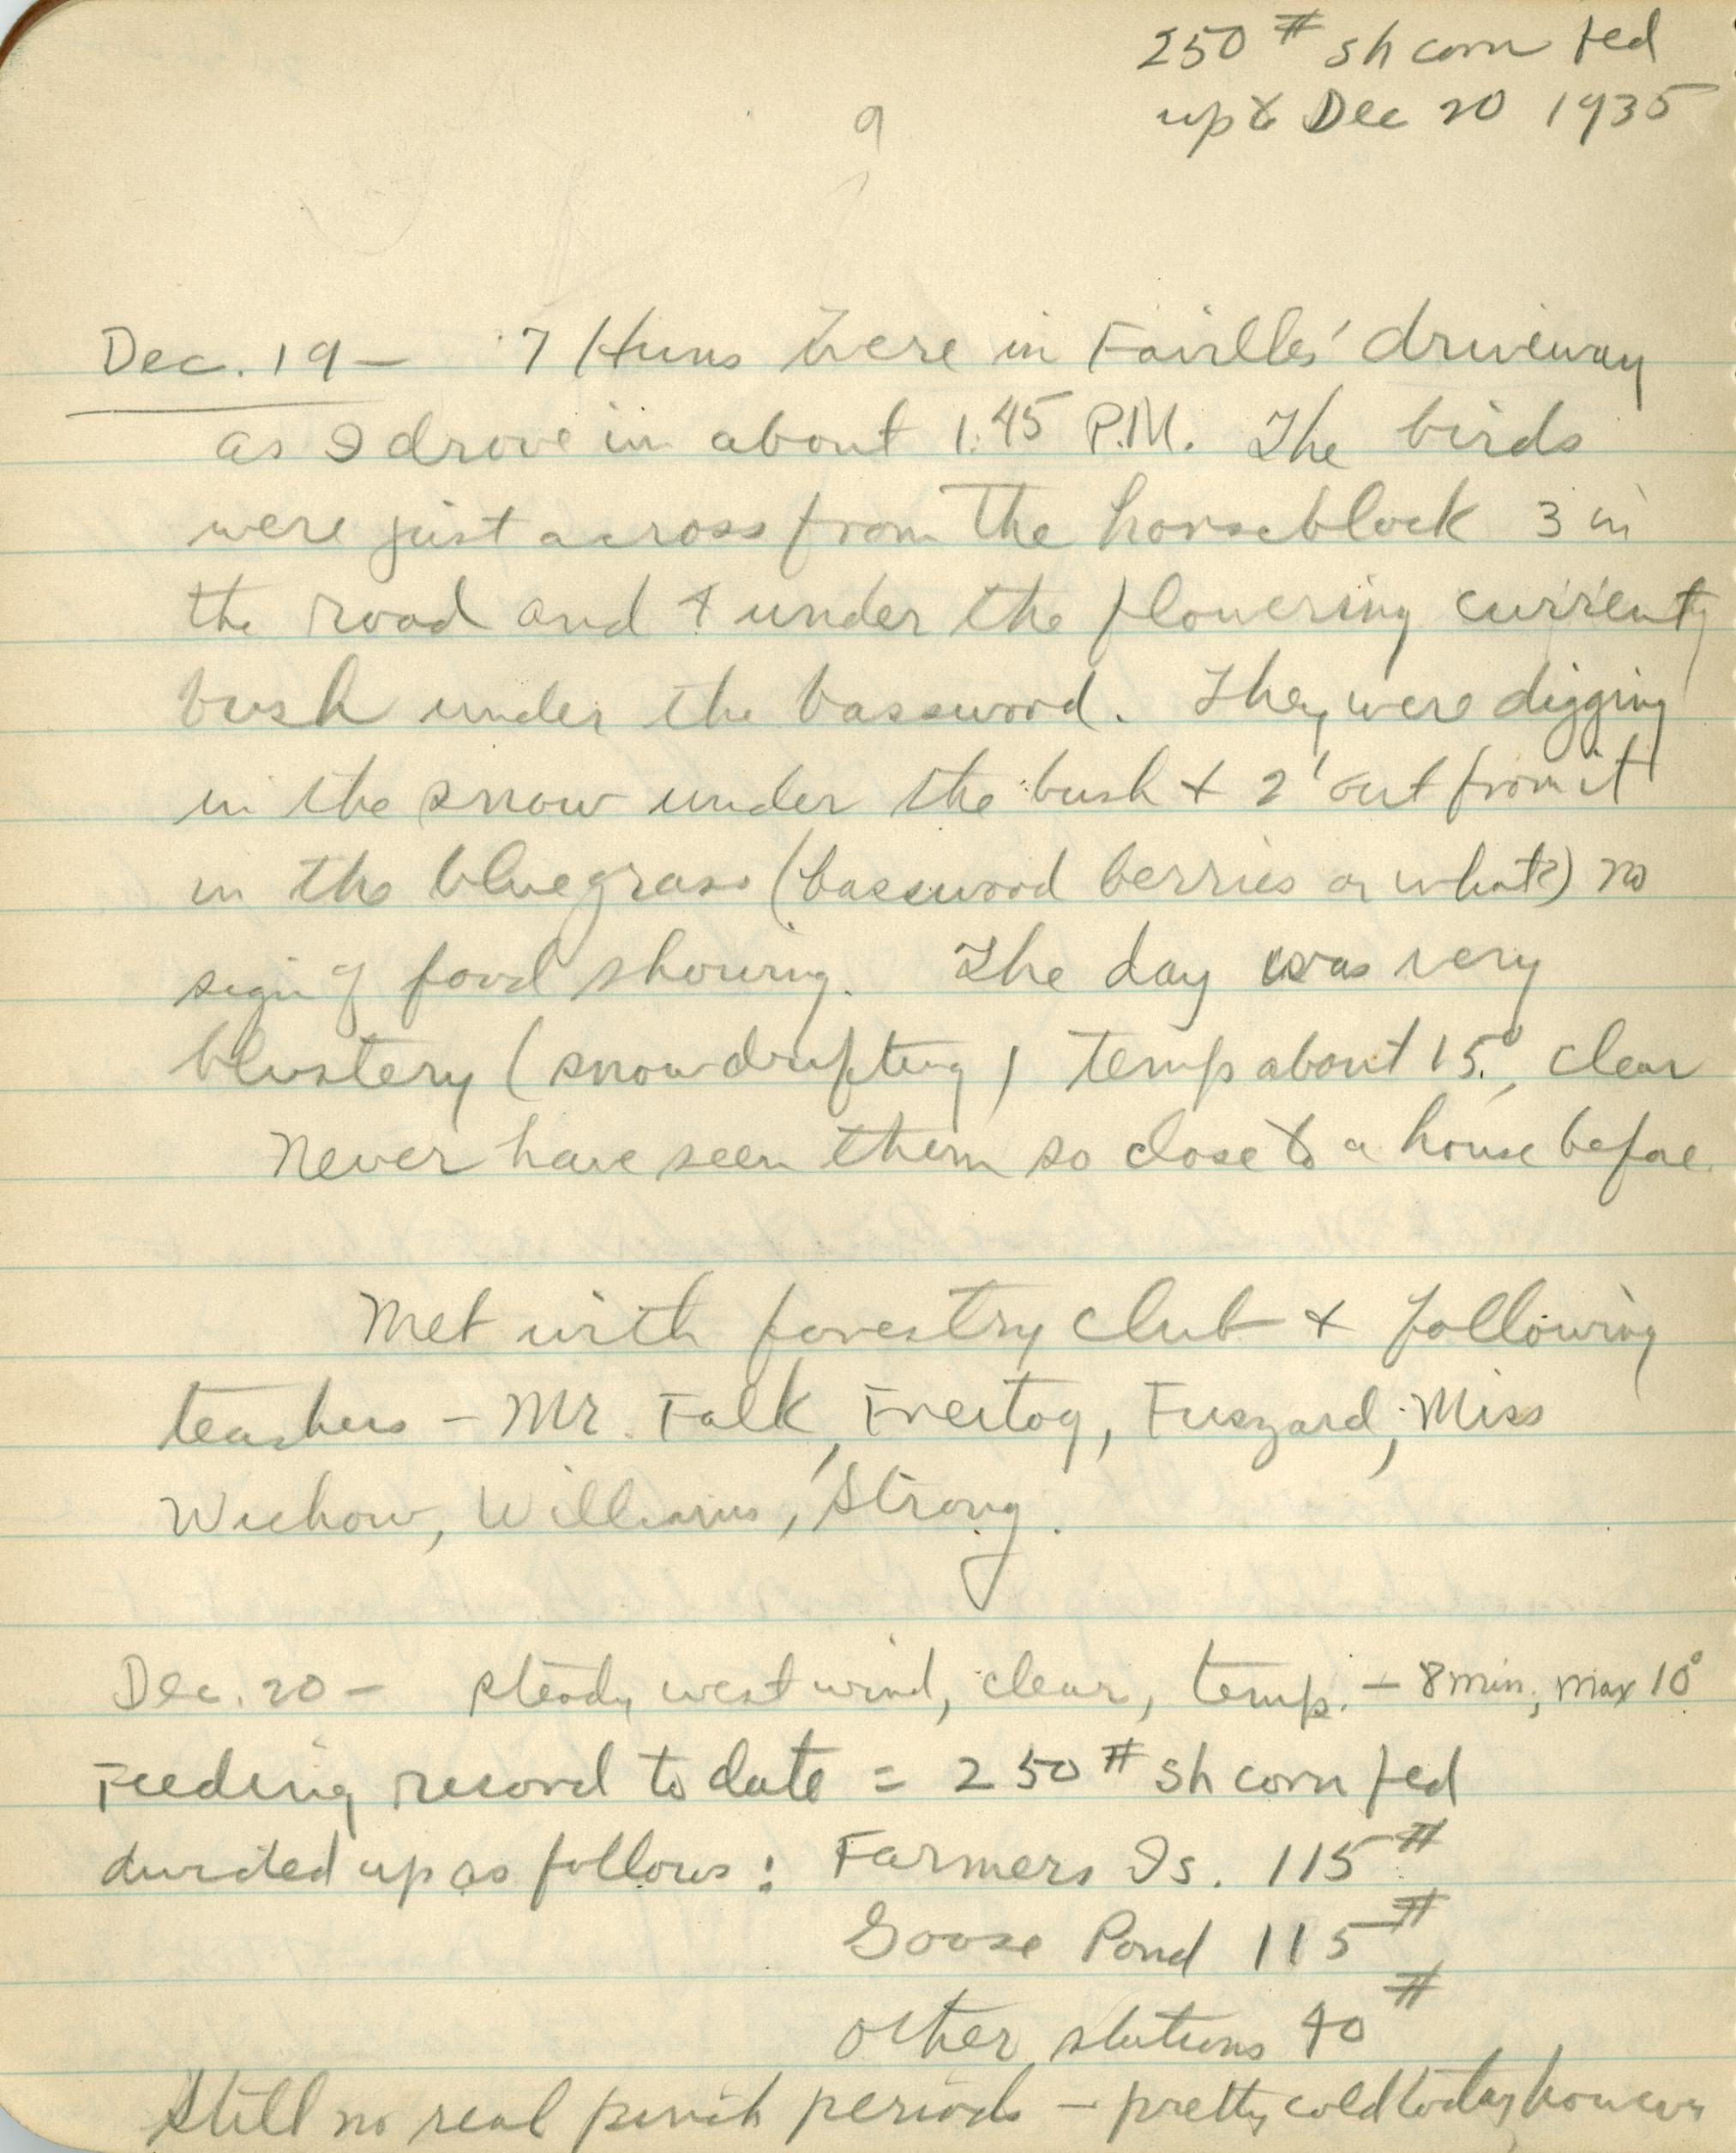 250 # sh corn fed
up to Dec 20 1935
9
Dec. 19 - 7 Huns were in Faville's' driveway
as I drove in about 1:45 P.M. The birds
were just across from the horseblock 3 in
the road and 4 under the flowering currenty
bush under the basswood. They were digging
in the snow under the bush + 2' out from it
in the bluegrass (basswood berries or what?) no
sign of food showing. The day was very
blustery (snow drifting) temp about 15°, clear
Never have seen them so close to a house before.
Met with forestry club + following
teachers - Mr. Falk, Freitag, Fuszard, Miss
Williams, Strong.
Dec. 20 - steady west wind, clear, temp. - 8 min, max 10°
Feeding record to date = 250 # sh corn fed
divided up as follows: Farmers Is. 115 #
Goose Pond 115 #
other stations 40 #
Still no real pinch periods - pretty cold today however